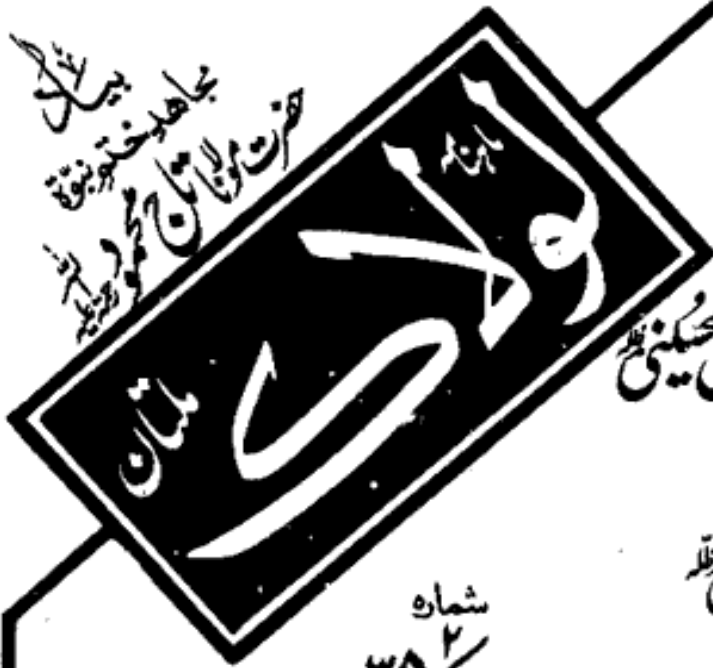 بیاد
مجاھد ختم نبوّۃ
حضرت مولانا تاج محمود رحمۃ اللہ علیہ
ماہنامہ
لولاک
ملتان
شمارہ
۲